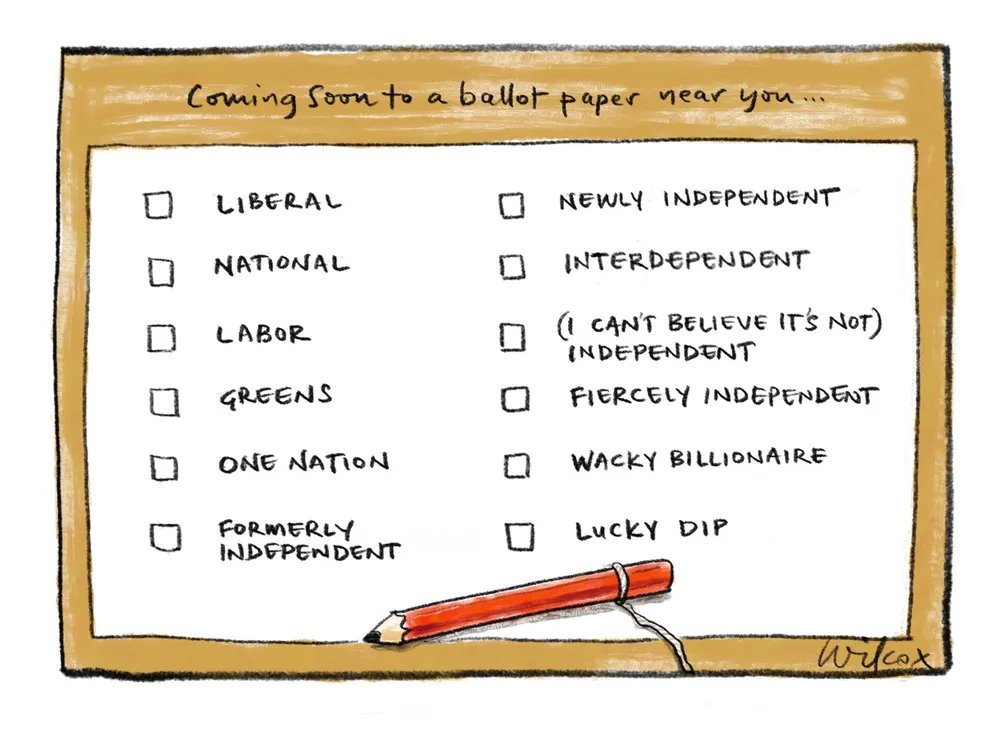 Coming soon to a ballot paper near you...
LIBERAL
NATIONAL
LABOR
GREENS
ONE NATION
FORMERLY
INDEPENDENT
NEWLY INDEPENDENT
INTERDEPENDENT
(I CAN'T BELIEVE IT'S NOT)
INDEPENDENT
FIERCELY INDEPENDENT
WACKY BILLIONAIRE
LUCKY DIP
Wilcox